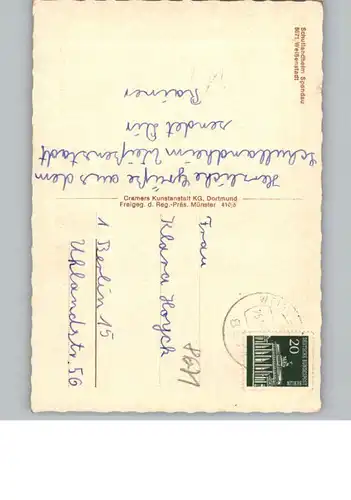 Schullandheim Spandau
8671 Weißenstadt
Herzliche Grüße aus dem
Schullandheim Weißenstadt
sendet Dir
Rainer
Cramers Kunstanstalt KG, Dortmund
Freigeg. d. Reg.-Präs. Münster
Frau
Klara Hoyck
1 Berlin 15
Uhlandstr. 56
8671
20
DEUTSCHE BUNDESPOST
BERLIN